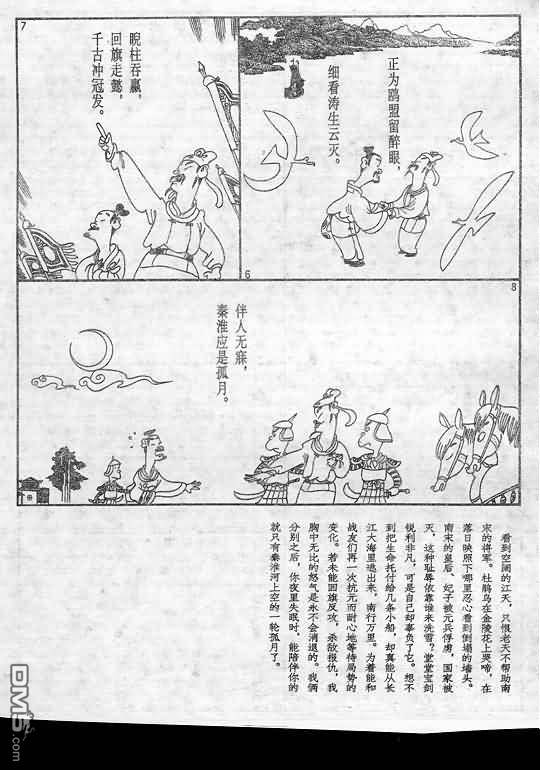 6
正为鸥盟留醉眼，
细看涛生云灭。
7
睨柱吞嬴，
回旗走懿，
千古冲冠发。
8
伴人无寐，
秦淮应是孤月。
看到空阔的江天，只恨老天不帮助南
宋的将军。杜鹃鸟在金陵花上哭啼，在
落日映照下哪里忍心看到倒塌的墙头。
南宋的皇后、妃子被元兵俘虏，国家被
灭，这种耻辱依靠谁来洗雪？堂堂宝剑
锐利非凡，可是自己却辜负了它。想不
到把生命托付给几条小船，却真能从长
江大海里逃出来，南行万里。为着能和
战友们再一次抗元而耐心地等待局势的
变化。若未能回旗反攻，杀敌报仇，我
胸中无比的怒气是永不会消退的。我俩
分别之后，你夜里失眠时，能陪伴你的
就只有秦淮河上空的一轮孤月了。
DM5